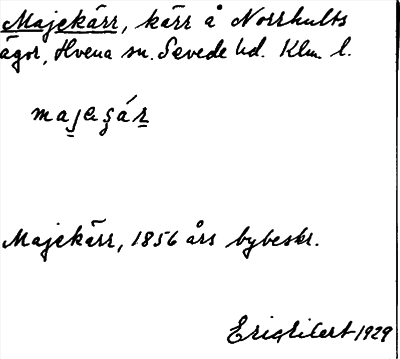 Majekärr, kärr å Norrhults
ägor, Hvena sn. Sevede hd. Klm. l.
majegár
Majekärr, 1856 års bybeskr.
Erik Eilert 1929